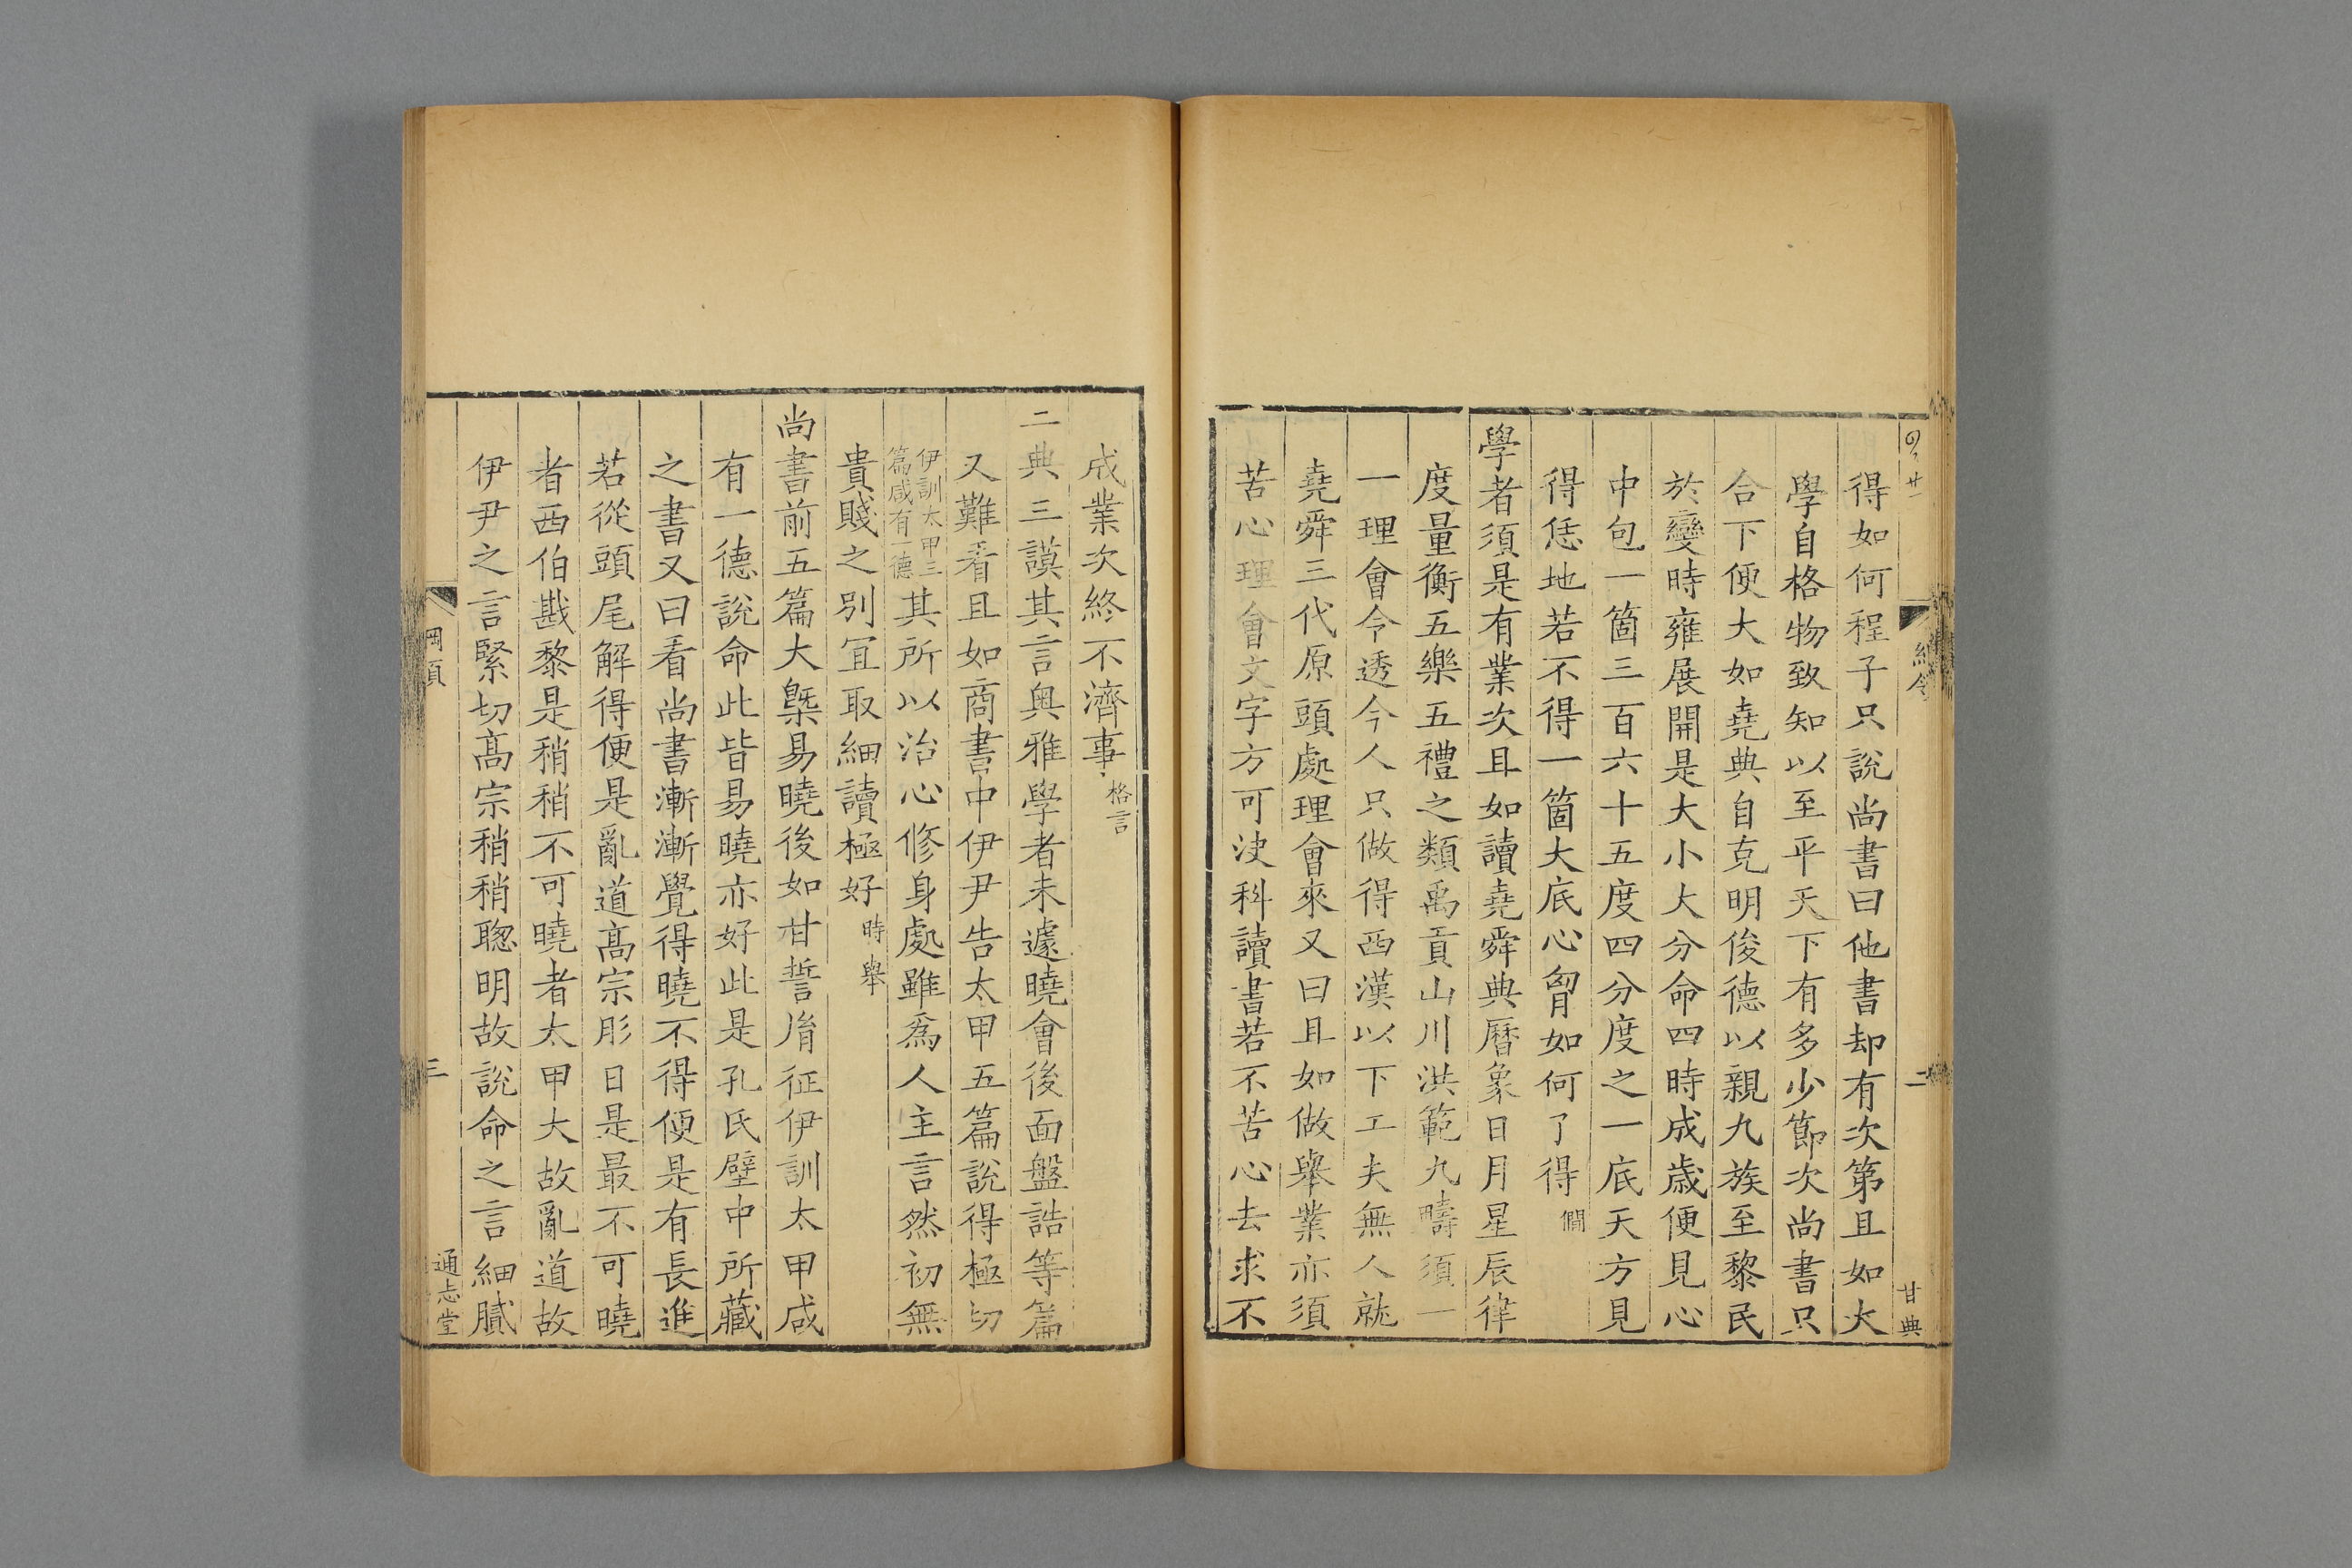 得如何程子只說尚書曰他書却有次第且如大
學自格物致知以至平天下有多少節次尚書只
合下便大如堯典自克明俊德以親九族至黎民
於變時雍展開是大小大分命四時成歲便見心
中包一箇三百六十五度四分度之一底天方見
得恁地若不得一箇大底心胷如何了得 僩
學者須是有業次且如讀堯舜典曆象日月星辰律
度量衡五樂五禮之類禹貢山川洪範九疇須一
一理會令透今人只做得西漢以下工夫無人就
堯舜三代原頭處理會來又曰且如做舉業亦須
苦心理會文字方可決科讀書若不苦心去求不
甘典
二
成業次終不濟事 格言
二典三謨其言奧雅學者未遽曉會後面盤誥等篇
又難看且如商書中伊尹告太甲五篇說得極切
伊訓太甲三
篇咸有一德
其所以治心修身處雖爲人主言然初無
貴賤之別宜取細讀極好 時舉
尚書前五篇大槩易曉後如甘誓胤征伊訓太甲咸
有一德說命此皆易曉亦好此是孔氏壁中所藏
之書又曰看尚書漸漸覺得曉不得便是有長進
若從頭尾解得便是亂道高宗肜日是最不可曉
者西伯戡黎是稍稍不可曉者太甲大故亂道故
伊尹之言緊切高宗稍稍聰明故說命之言細膩
三
通志堂